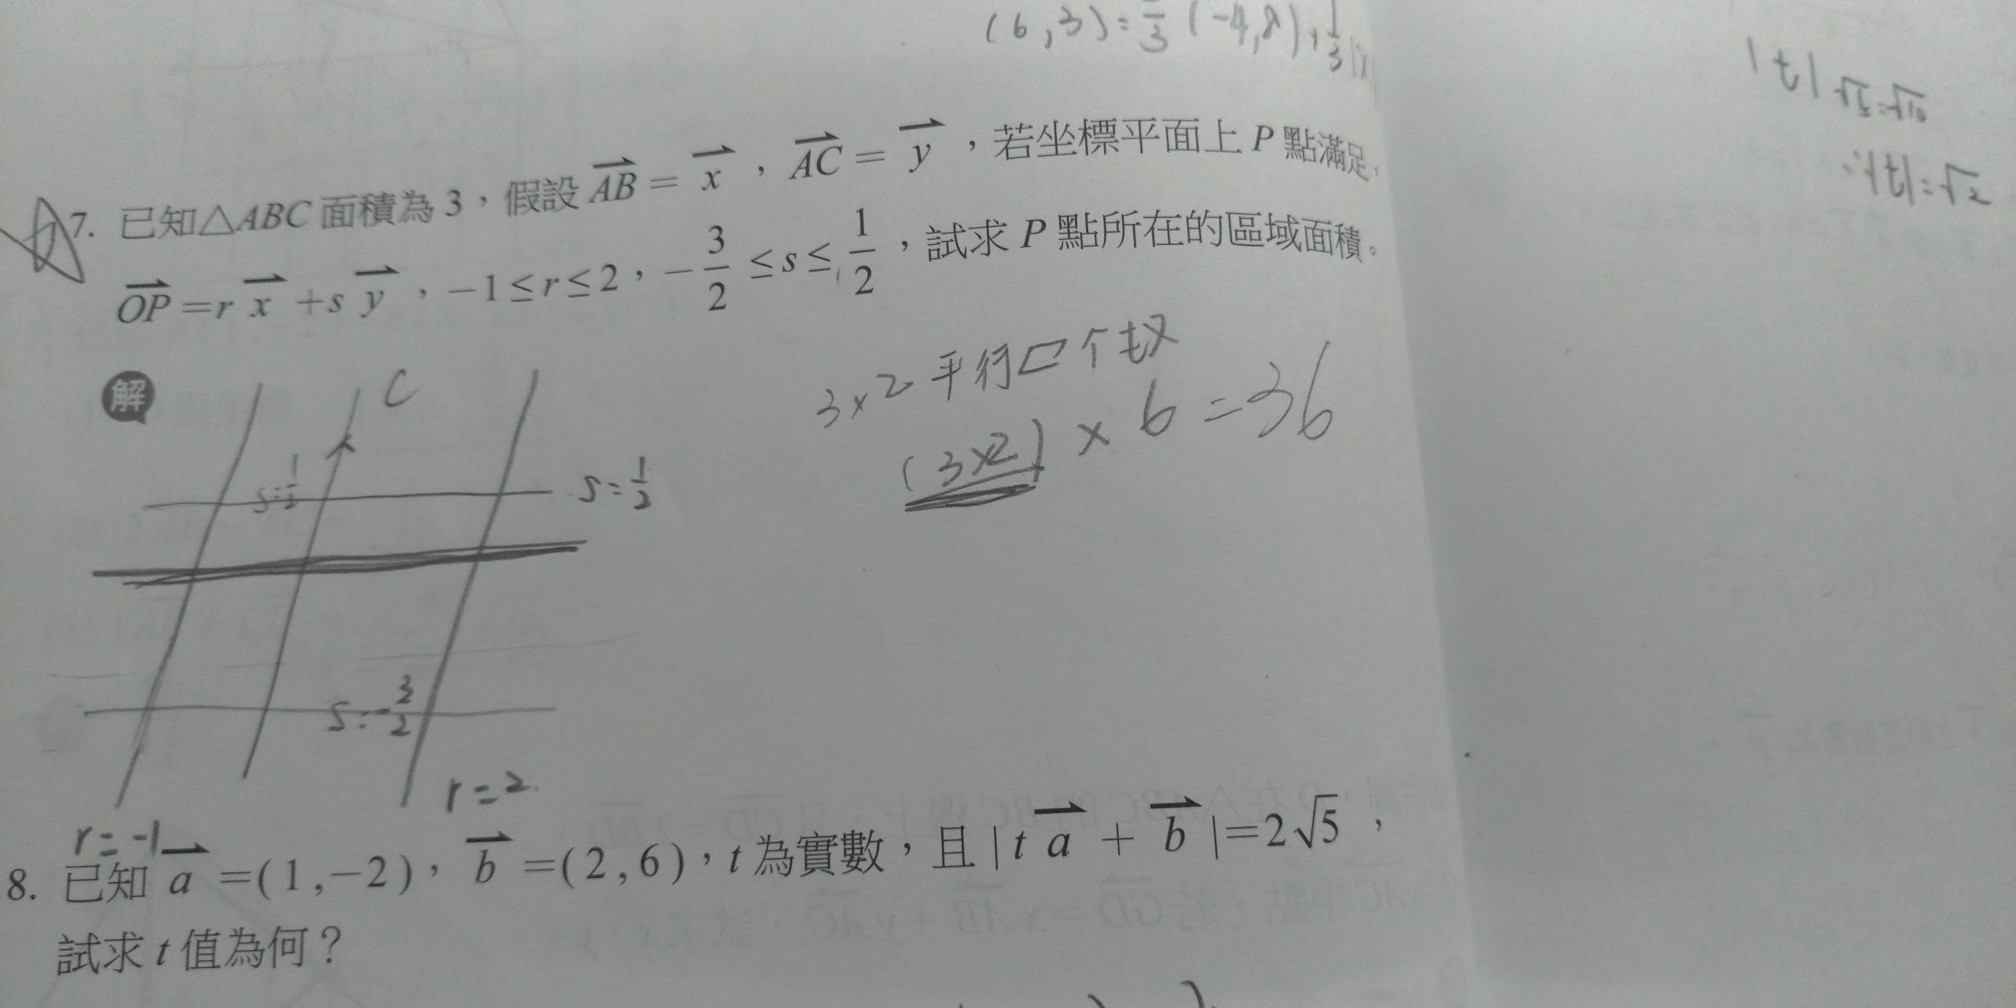 (6,3)=_/3(-4,8)+1/3(x
|t|√5=√10
∴|t|=√2
7. 已知△ABC 面積為 3，假設 AB⇀ = x⇀，AC⇀ = y⇀，若坐標平面上 P 點滿足，
OP⇀ = r x⇀ + s y⇀，-1≤r≤2，-3/2≤s≤1/2，試求 P 點所在的區域面積。
解
C
3×2 平行▱个数
(3×2)×6=36
s=1/2
s=1/2
s=-3/2
r=2
r=-1
8. 已知 a⇀ =(1,-2)，b⇀ =(2,6)，t 為實數，且 | t a⇀ + b⇀ |=2√5，
試求 t 值為何？